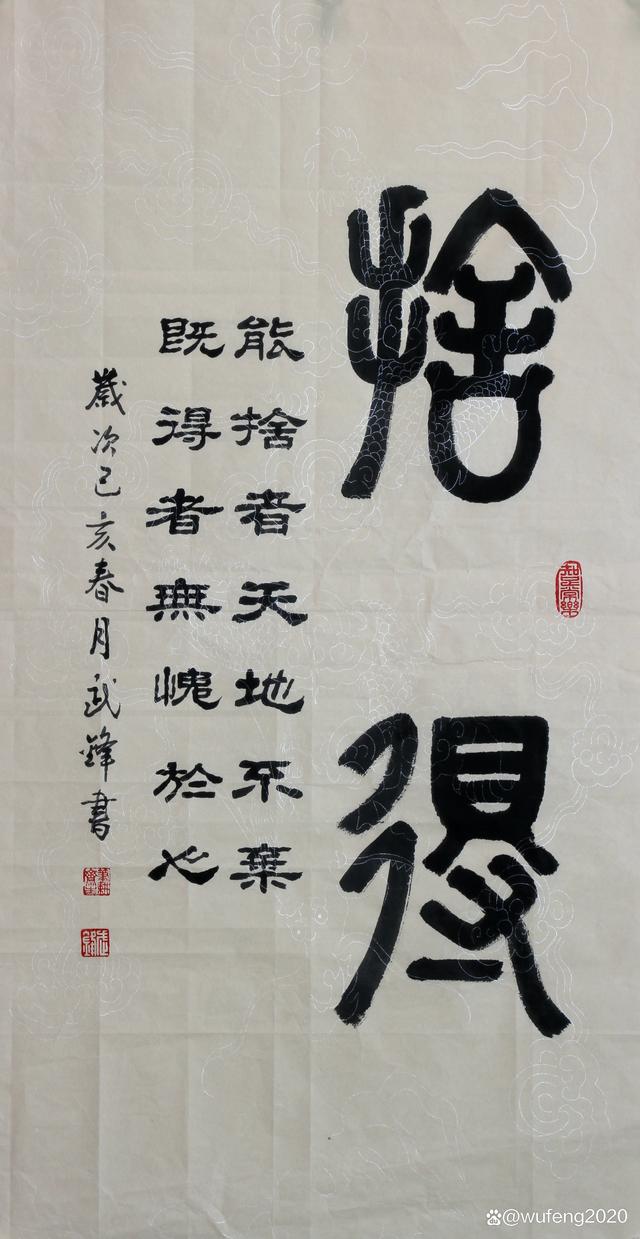 捨得
能捨者天地不棄
既得者無愧於心
歲次己亥春月武鋒書
知足常樂
@wufeng2020